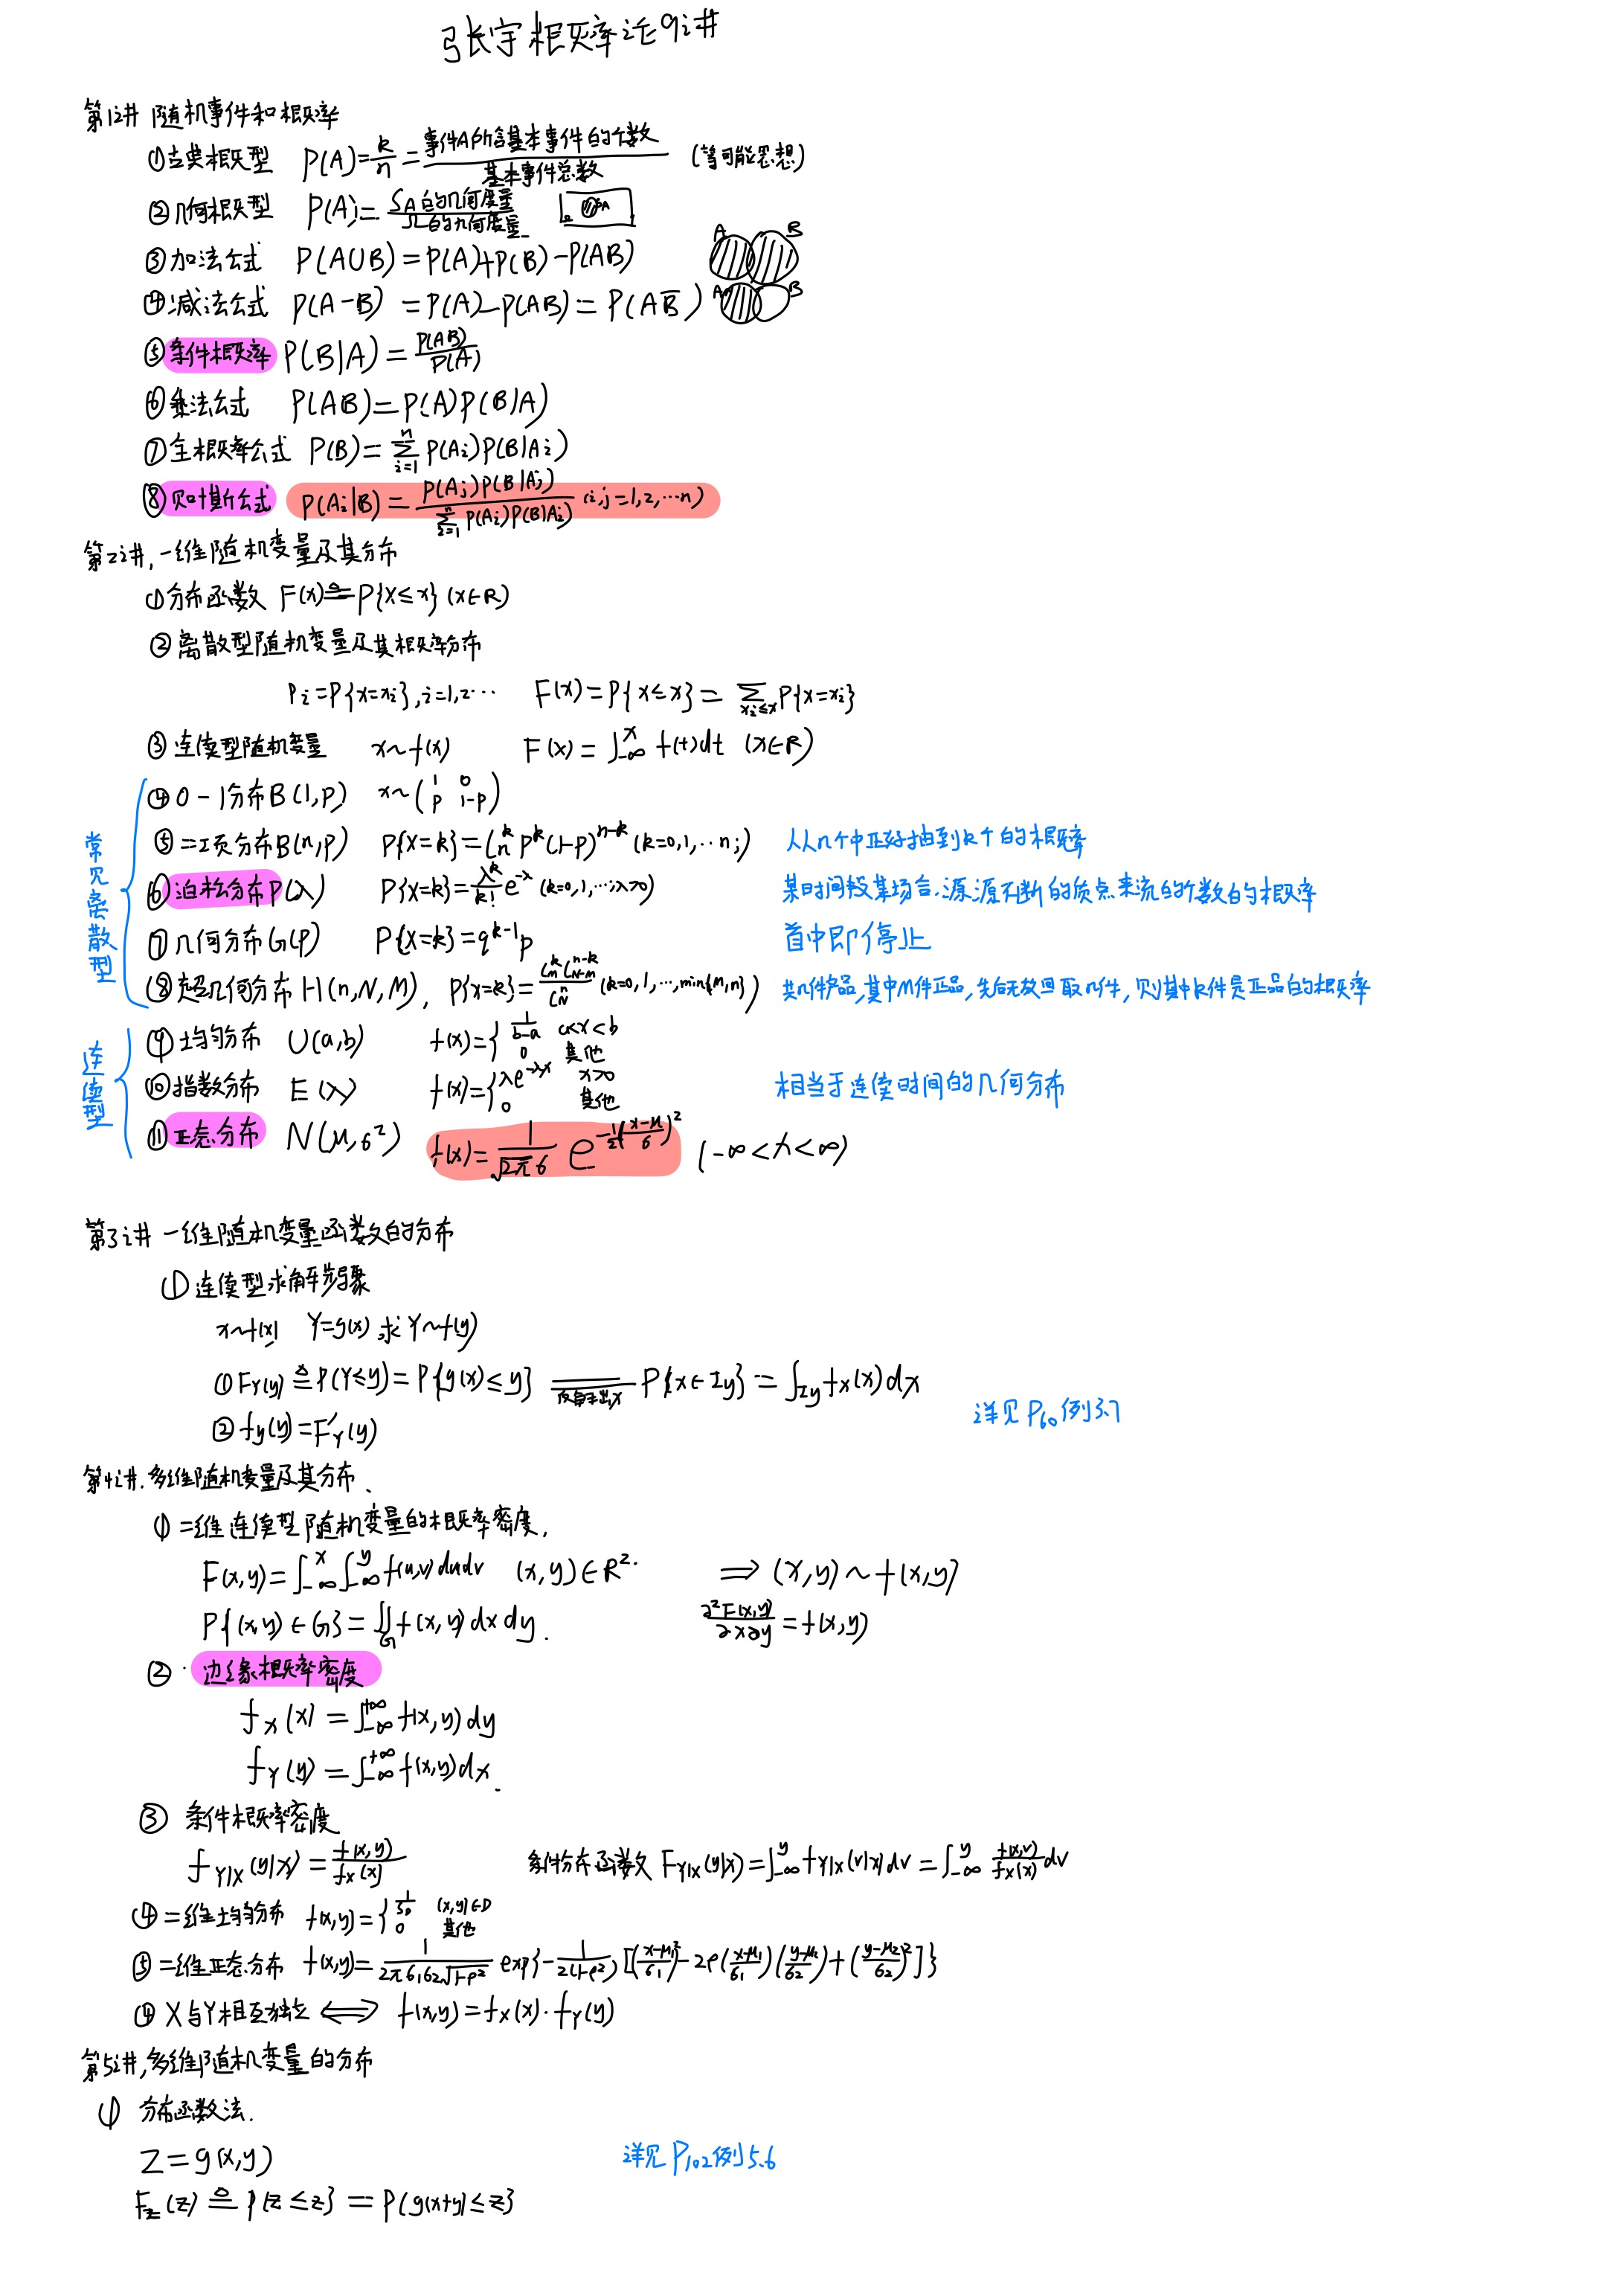 张宇概率论9讲
第1讲 随机事件和概率
①古典概型 P(A)=k/n=事件A所含基本事件的个数/基本事件总数 (等可能思想)
②几何概型 P(A)=S_A的几何度量/Ω的几何度量 Ω S_A
③加法公式 P(A∪B)=P(A)+P(B)-P(AB) A B
④减法公式 P(A-B)=P(A)-P(AB)=P(AB̅) A B
⑤条件概率 P(B|A)=P(AB)/P(A)
⑥乘法公式 P(AB)=P(A)P(B|A)
⑦全概率公式 P(B)=∑_{i=1}^{n} P(A_i)P(B|A_i)
⑧贝叶斯公式 P(A_i|B)=P(A_j)P(B|A_j)/∑_{i=1}^{n} P(A_i)P(B|A_i) (i,j=1,2,…n)
第2讲,一维随机变量及其分布
①分布函数 F(x)≜P{X≤x} (x∈R)
②离散型随机变量及其概率分布
P_i=P{x=x_i},i=1,2… F(x)=P{x≤x}=∑_{x_i≤x} P{x=x_i}
③连续型随机变量 x~f(x) F(x)=∫_{-∞}^{x} f(t)dt (x∈R)
常见离散型
④0-1分布B(1,p) x~(1 0 / p 1-p)
⑤二项分布B(n,p) P{X=k}=C_n^k p^k(1-p)^{n-k} (k=0,1,…n;) 从n个中正好抽到k个的概率
⑥泊松分布P(λ) P{X=k}=λ^k/k! e^{-λ} (k=0,1,…;λ>0) 某时间段某场合.源源不断的质点来流的个数的概率
⑦几何分布G(p) P{X=k}=q^{k-1}p 首中即停止
⑧超几何分布H(n,N,M), P{x=k}=C_M^k C_{N-M}^{n-k}/C_N^n (k=0,1,…,min{M,n}) 共n件产品,其中M件正品,先后无放回取n件,则其中k件是正品的概率
连续型
⑨均匀分布 U(a,b) f(x)={1/(b-a) a<x<b
0 其他
⑩指数分布 E(λ) f(x)={λe^{-λx} x>0 相当于连续时间的几何分布
0 其他
⑪正态分布 N(μ,σ²) f(x)=1/(√(2π)σ) e^{-1/2((x-μ)/σ)²} (-∞<x<∞)
第3讲 一维随机变量函数的分布
①连续型求解步骤
x~f(x) Y=g(x) 求Y~f(y)
①F_Y(y)≜P(Y≤y)=P{g(x)≤y} =反解出x= P{x∈I_y}=∫_{I_y} f_X(x)dx
②f_y(y)=F_Y'(y) 详见P_60例3.7
第4讲.多维随机变量及其分布、
①二维连续型随机变量的概率密度,
F(x,y)=∫_{-∞}^{x}∫_{-∞}^{y} f(u,v)dudv (x,y)∈R². ⟹(X,y)~f(x,y)
P{(x,y)∈G}=∬_G f(x,y)dxdy. ∂²F(x,y)/∂x∂y=f(x,y)
②·边缘概率密度
f_X(x)=∫_{-∞}^{+∞} f(x,y)dy
f_Y(y)=∫_{-∞}^{+∞} f(x,y)dx.
③ 条件概率密度
f_{Y|X}(y|x)=f(x,y)/f_X(x) 条件分布函数F_{Y|X}(y|x)=∫_{-∞}^{y} f_{Y|X}(v|x)dv=∫_{-∞}^{y} f(x,v)/f_X(x) dv
④二维均匀分布 f(x,y)={1/S_D (x,y)∈D
0 其他
⑤二维正态分布 f(x,y)=1/(2πσ_1σ_2√(1-ρ²)) exp{-1/(2(1-ρ²))[((x-μ_1)/σ_1)²-2ρ((x-μ_1)/σ_1)((y-μ_2)/σ_2)+((y-μ_2)/σ_2)²]}
④X与Y相互独立⟺ f(x,y)=f_X(x)·f_Y(y)
第5讲,多维随机变量的分布
① 分布函数法.
Z=g(x,y) 详见P_102例5.6
F_Z(z)≜P{Z≤z}=P{g(x+y)≤z}